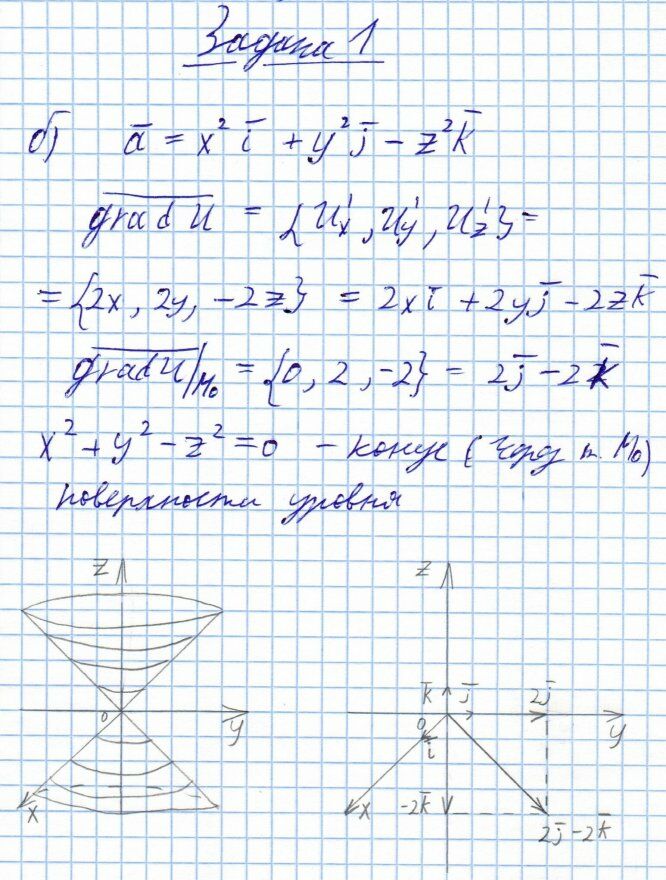 Задача 1
б) a̅ = x² i̅ + y² j̅ − z² k̅
grad U = {U'x, U'y, U'z} =
= {2x, 2y, −2z} = 2x i̅ + 2y j̅ − 2z k̅
grad U|M₀ = {0, 2, −2} = 2j̅ − 2k̅
x² + y² − z² = 0 – конус (через т. M₀)
поверхности уровня
z
0
y
x
z
k̅ j̅ 2j̅
0
y
i̅
x
−2k̅
2j̅ − 2k̅